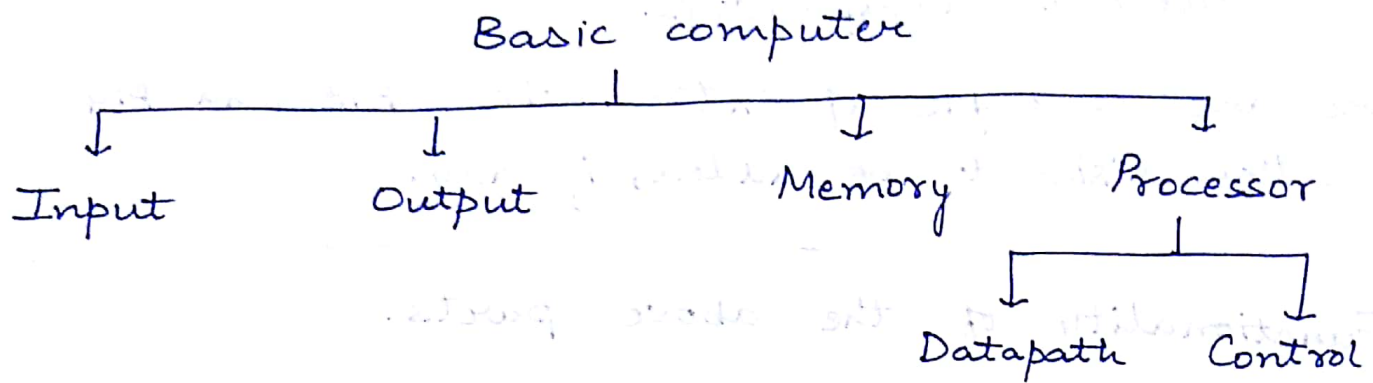 Basic computer
Input Output Memory Processor
Datapath Control